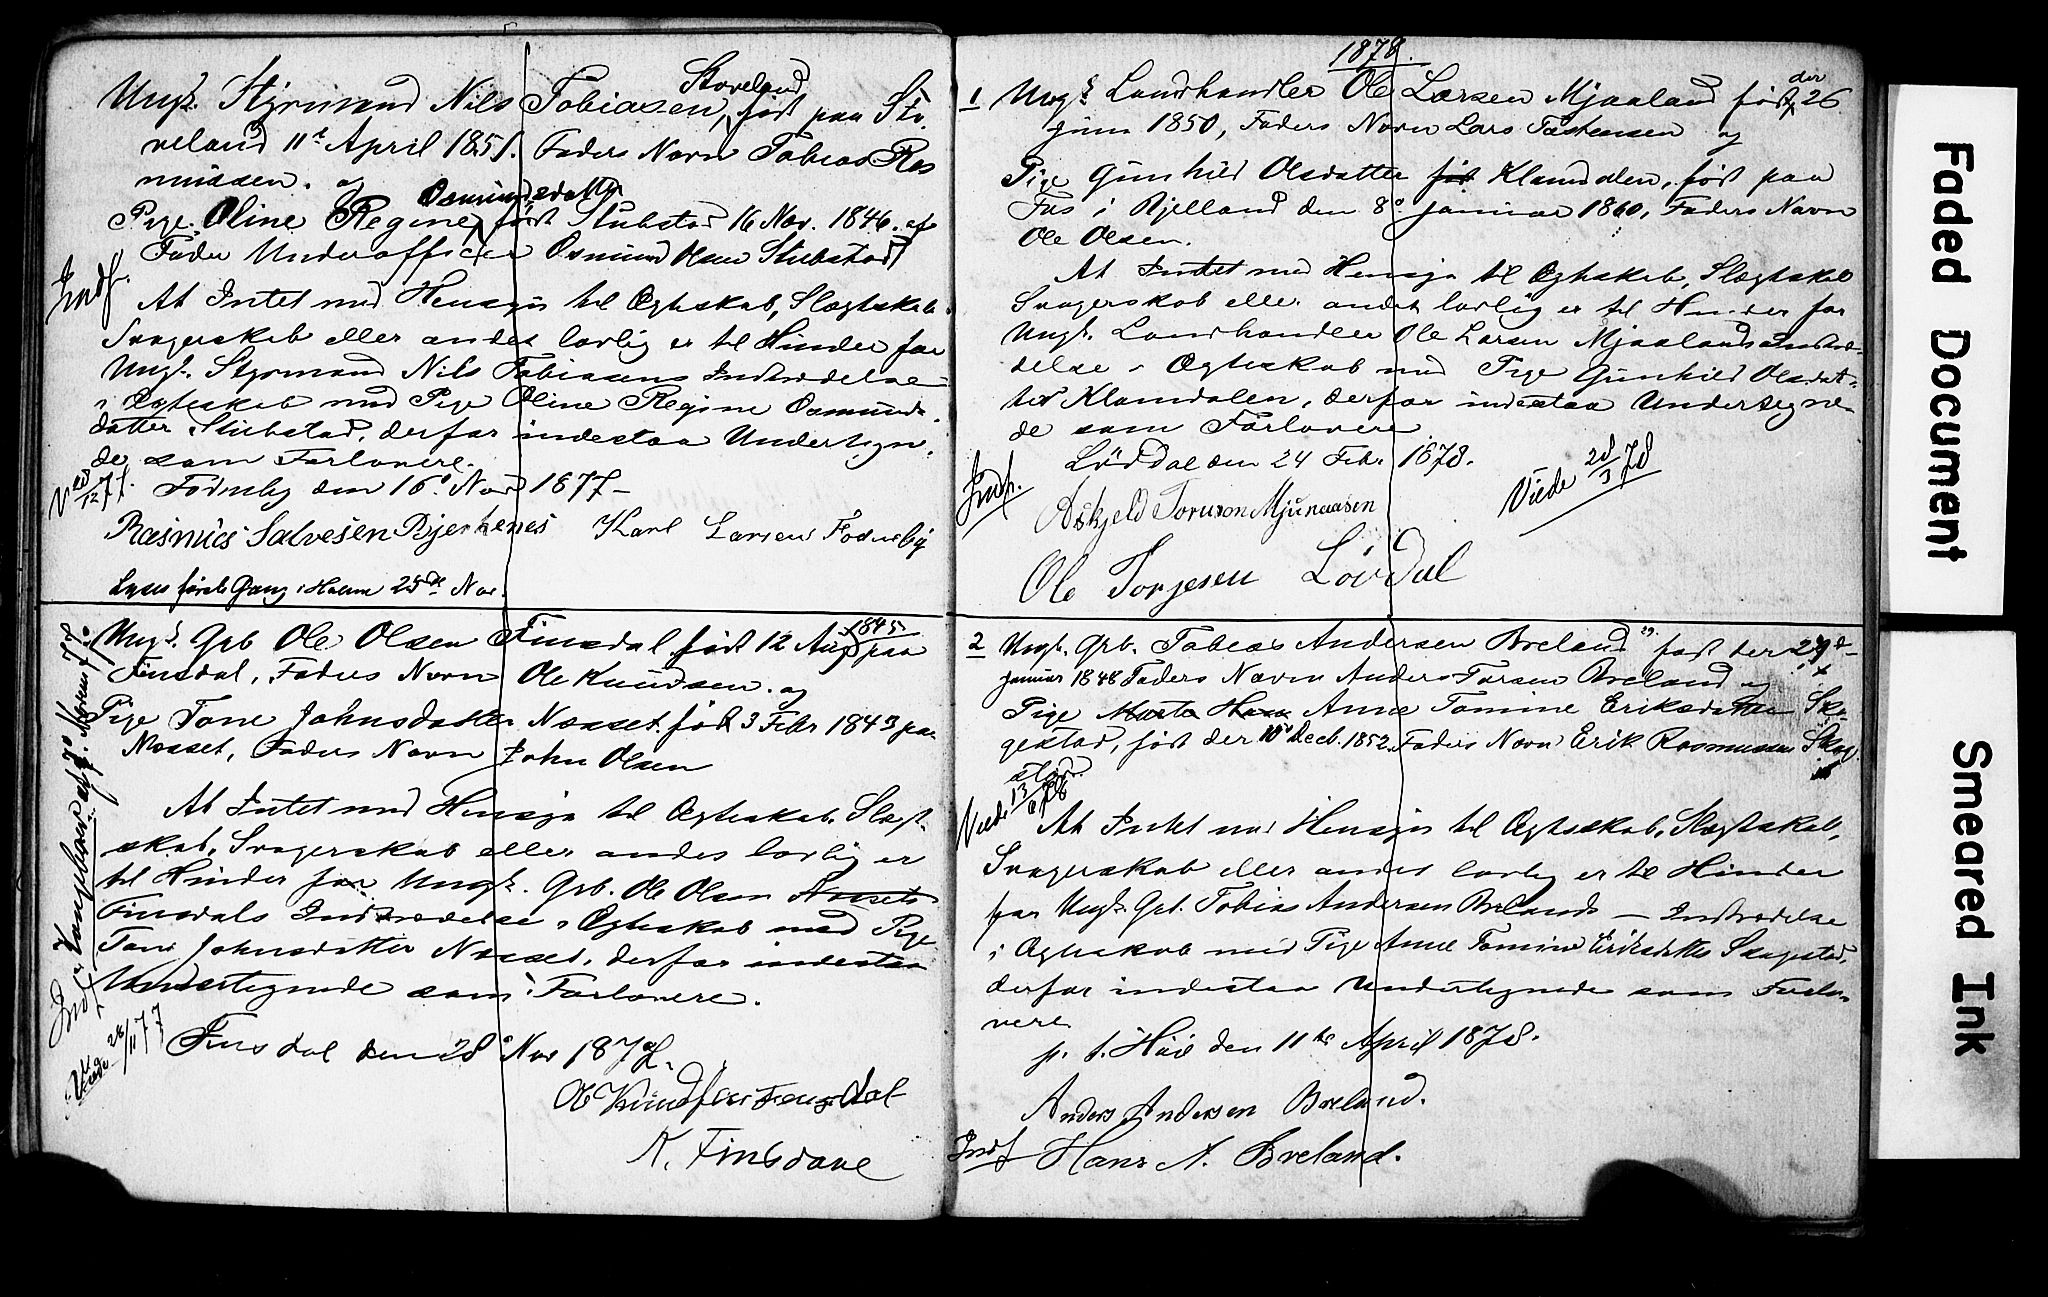 Ungk. Styrmand Nils Tobiasen Stoveland, født paa Sto-
veland 11te April 1851. Faders Navn Tobias Ras
mussen. og
Pige Oline Regine Osmundsdatter født Stubstad 16 Nov. 1846. af
Fader Underofficer Osmund Olsen Stubstad
Indf.
At Intet med Hensyn til Ægteskab, Slægtskab
Svogerskab eller andet lovlig er til Hinder for
Ungk. Styrmand Nils Tobiasens Indtrædelse
i Ægteskab med Pige Oline Regine Osmunds
datter Stubstad, derfor indestaa Undertegn.
de som Forlovere.
V 28/12 77. Fodnebg den 16de Nov 1877-
Rasmus Salvesen Bjerkenes Karl Larsen Fodnebg
Lyses første Gang i Holum 25de Nov.
Ungk. Grb Ole Olsen Finsdal født 12 Aug 1845 paa
Finsdal, Faders Navn Ole Knudsen. og
Pige Tone Johnsdatter Nœsset. født 3 Febr 1843 paa
Nœsset, Faders Navn John Olsen
At Intet med Hensyn til Ægteskab, Slægt-
skab, Svogerskab eller andet lovlig er
til Hinder for Ungk. Grb. Ole Olsen Nœsets
Finsdals Indtrædelse i Ægteskab med Pige
Tone Johnsdatter Nœsset, derfor indestaa
Undertegnede som Forlovere.
Viede 28/11 77
Finsdal den 28 Nov 1877.
O Knudsen Finsdal
K. Finsdane
1878.
1 Ungk. Landhandler Ole Larsen Mjaaland født den 26
Juni 1850, Faders Navn Lars Tostensen og
Pige Gunhild Olsdatter født Klamdalen, født paa
Fus i Bjelland den 8de Januar 1860, Faders Navn
Ole Olsen.
At Intet med Hensyn til Ægteskab, Slægtskab
Svogerskab eller andet lovlig er til Hinder for
Ungk. Landhandler Ole Larsen Mjaalands Indtræ-
delse i Ægteskab med Pige Gunhild Olsdat-
ter Klamdalen, derfor indestaa Undertegne-
de som Forlovere.
Løvdal den 24 Febr. 1878.
Indf. Viede 28/3 78
Askjeld Mjunaasen
Ole Torjesen Løvdal
2 Ungk. Grb. Tobias Andersen Breland 29. født den
Januar 1848 Faders Navn Anders Breland og
Pige Marte Anne Tomine Eriksdatter Ska-
gestad, født den 10de Decb. 1852. Faders Navn Erik Rasmussen Skag.
stad.
Viede 13/6 78
At Intet med Hensyn til Ægteskab, Slægtskab,
Svogerskab eller andet lovlig er til Hinder
for Ungk. Grb. Tobias Andersen Brelands - Indtrædelse
i Ægteskab med Pige Anne Tomine Eriksdatter Skagestad,
derfor indestaa Undertegnede som Forlo-
vere
p. t. Høie den 11te April 1878.
Anders Andersen Breland.
Indf Hans A. Breland.
Faded Document
Smeared Ink